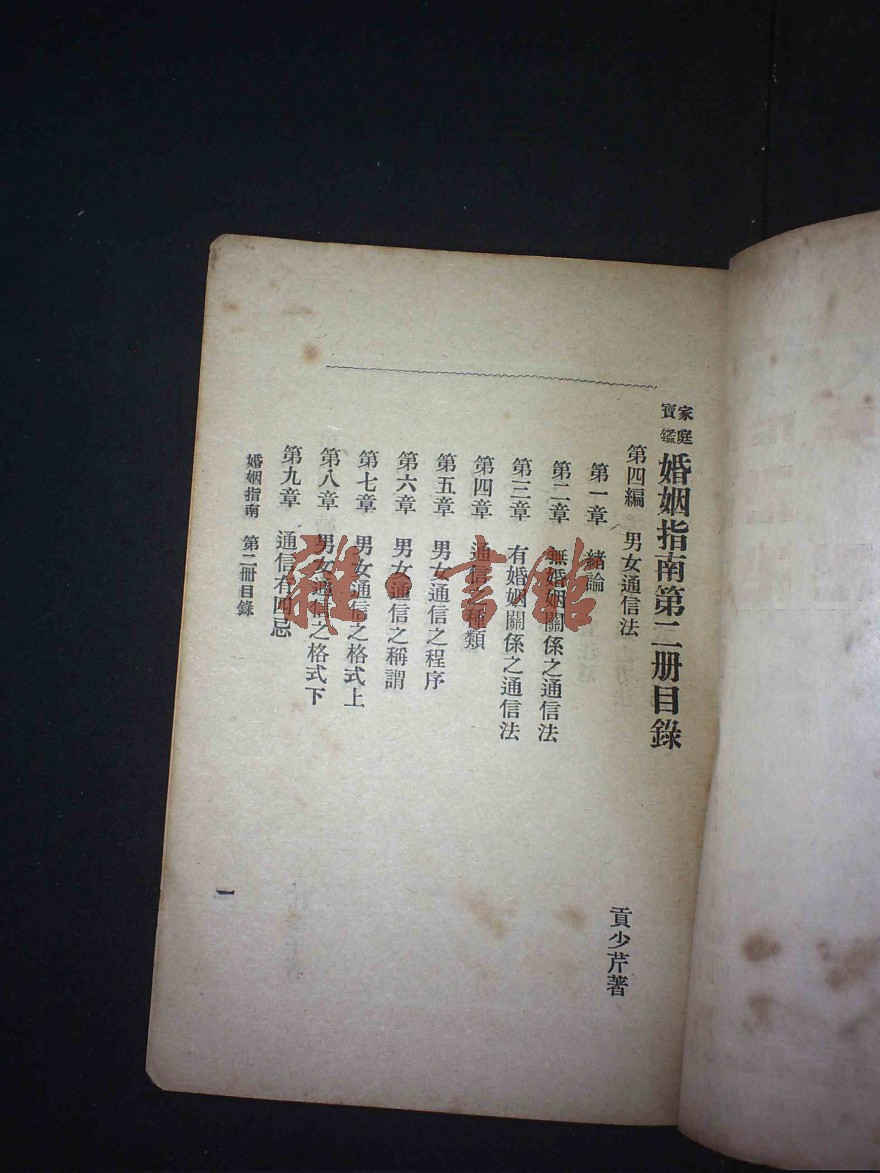 家庭寶鑑 婚姻指南第二册目錄
貢少芹著
第四編 男女通信法
第一章 緒論
第二章 無婚姻關係之通信法
第三章 有婚姻關係之通信法
第四章 通信之種類
第五章 男女通信之程序
第六章 男女通信之稱謂
第七章 男女通信之格式上
第八章 男女通信之格式下
第九章 通信有四忌
婚姻指南 第二冊目錄
一
雜·書館